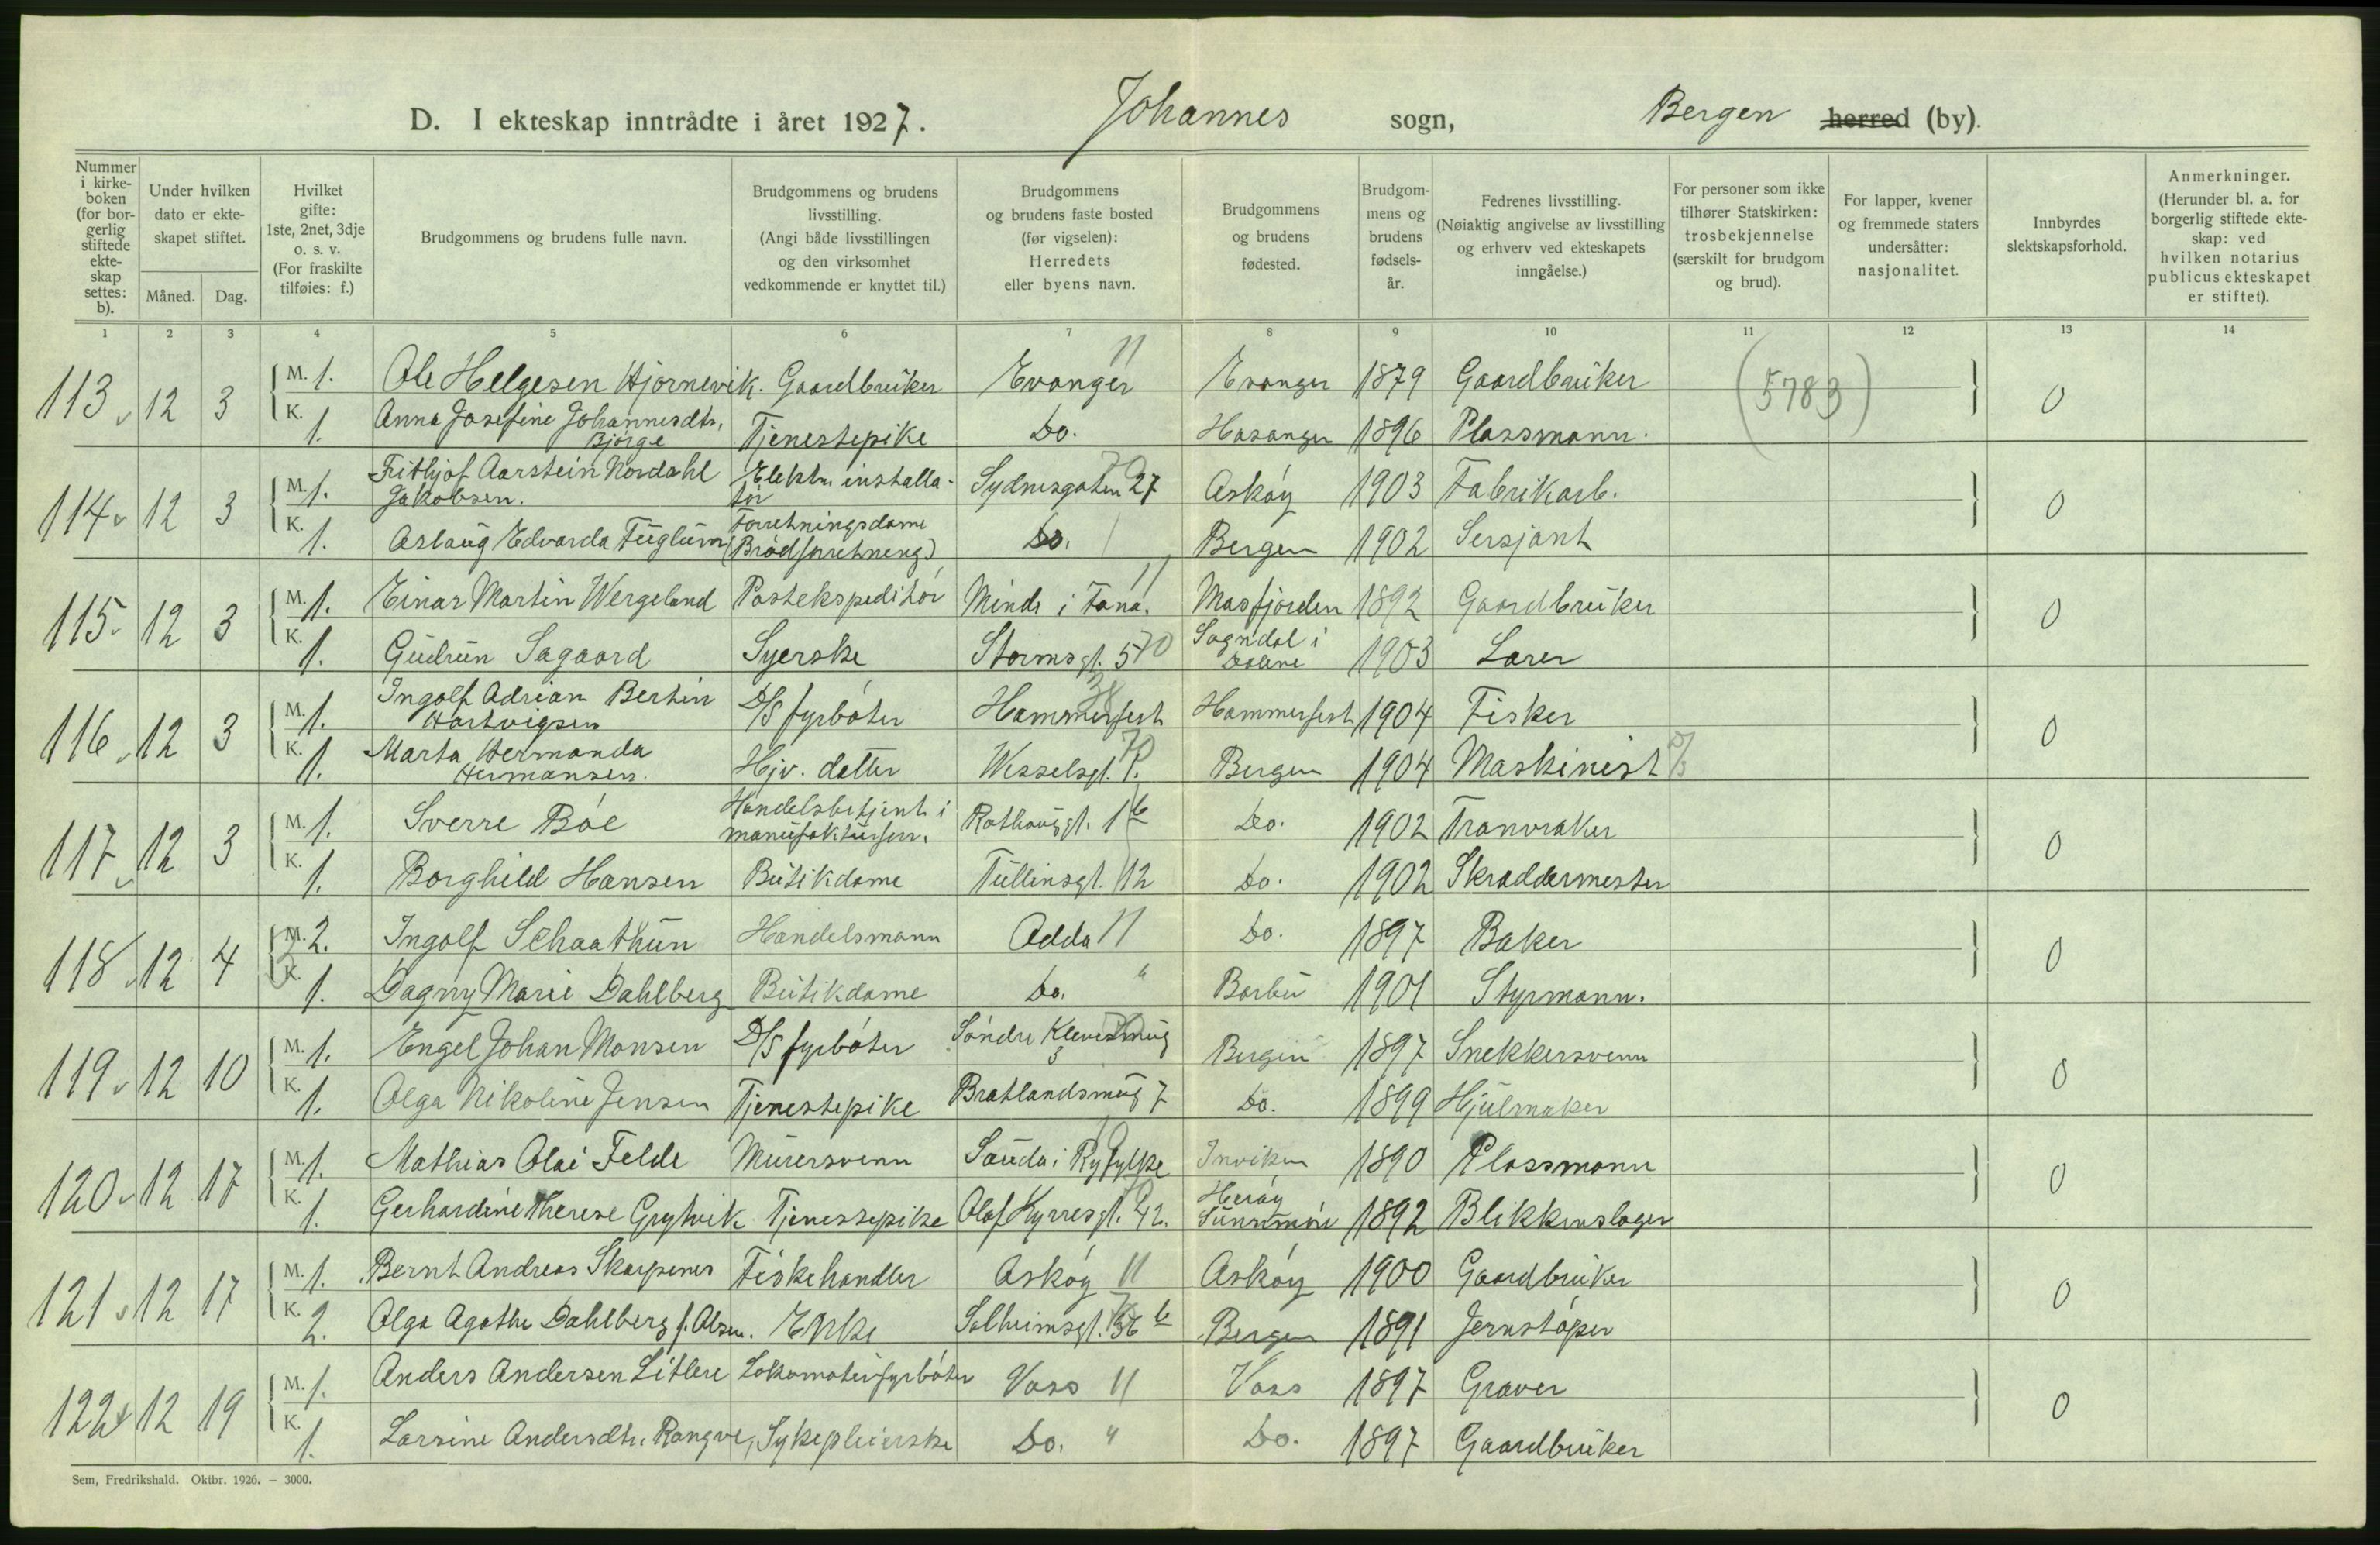 D. I ekteskap inntrådte i året 1927. Johannes sogn, Bergen herred (by).
Nummer i kirkeboken (for borgerlig stiftede ekteskap settes: b).
Under hvilken dato er ekteskapet stiftet.
Måned. Dag.
Hvilket gifte: 1ste, 2net, 3dje o. s. v. (For fraskilte tilføies: f.)
Brudgommens og brudens fulle navn.
Brudgommens og brudens livsstilling. (Angi både livsstillingen og den virksomhet vedkommende er knyttet til.)
Brudgommens og brudens faste bosted (før vigselen): Herredets eller byens navn.
Brudgommens og brudens fødested.
Brudgommens og brudens fødselsår.
Fedrenes livsstilling. (Nøiaktig angivelse av livsstilling og erhverv ved ekteskapets inngåelse.)
For personer som ikke tilhører Statskirken: trosbekjennelse (særskilt for brudgom og brud).
For lapper, kvener og fremmede staters undersåtter: nasjonalitet.
Innbyrdes slektskapsforhold.
Anmerkninger. (Herunder bl. a. for borgerlig stiftede ekteskap: ved hvilken notarius publicus ekteskapet er stiftet).
1 2 3 4 5 6 7 8 9 10 11 12 13 14
113 12 3 M. 1. Ole Helgesen Hjørnevik. Gaardbruker Evanger 11 Evanger 1879 Gaardbruker (5783) 0
K. 1. Anna Josefine Johannesdtr. Bjørge Tjenestepike Do. Hosanger 1896 Plassmann.
114 12 3 M. 1. Frithjof Aarstein Nordahl Jakobsen. Elektr. installatør Sydnesgaten 27 Askøy 1903 Fabrikarb. 0
K. 1. Aslaug Edvarda Fuglum Forretningsdame (Brødforretning) Do. Bergen 1902 Sersjant
115 12 3 M. 1. Einar Martin Wergeland Postekspeditør Minde i Fana. 11 Masfjorden 1892 Gaardbruker 0
K. 1. Gudrun Sagaard Syerske Stormsgt. 5 70 Sogndal i Dalane 1903 Lærer
116 12 3 M. 1. Ingolf Adrian Bertin Hartvigsen D/S fyrbøter Hammerfest Hammerfest 1904 Fisker 0
K. 1. Marta Hermanda Hermansen. Hjv. datter Wesselsgt. Bergen 1904 Maskinist
117 12 3 M. 1. Sverre Bøe Handelsbetjent i manufakturforr. Rothaugsgt. 1 b Do. 1902 Tranvraker 0
K. 1. Borghild Hansen Butikdame Tullinsgt. 12 Do. 1902 Skraddermester
118 12 4 M. 2. Ingolf Schaathun Handelsmann Odda 11 Do. 1897 Baker 0
K. 1. Dagny Marie Dahlberg Butikdame Do. " Barbu 1901 Styrmann.
119 12 10 M. 1. Engel Johan Monsen D/S fyrbøter Søndre Klevesmug 3 Bergen 1897 Snekkersvenn 0
K. 1. Olga Nikoline Jensen Tjenestepike Bratlandsmug 7 Do. 1899 Hjulmaker
120 12 17 M. 1. Mathias Olai Felde Murersvenn Sauda i Ryfylke Inviken 1890 Plassmann 0
K. 1. Gerhardine Therese Grytvik Tjenestepike Olaf Kyrresgt. 42. Herøy Sunnmøre 1892 Blikkenslager
121 12 17 M. 1. Bernt Andreas Skarpenes Fiskehandler Askøy 11 Askøy 1900 Gaardbruker 0
K. 2. Olga Agathe Dahlberg f. Olsen. Enke Solheimsgt. 36 b Bergen 1891 Jernstøper
122 12 19 M. 1. Anders Andersen Litlere Lokomotivfyrbøter Voss 11 Voss 1897 Graver 0
K. 1. Larsine Andersdtr. Rongve, Sykepleierske Do. " Do. 1897 Gaardbruker
Sem, Fredrikshald. Oktbr. 1926. — 3000.